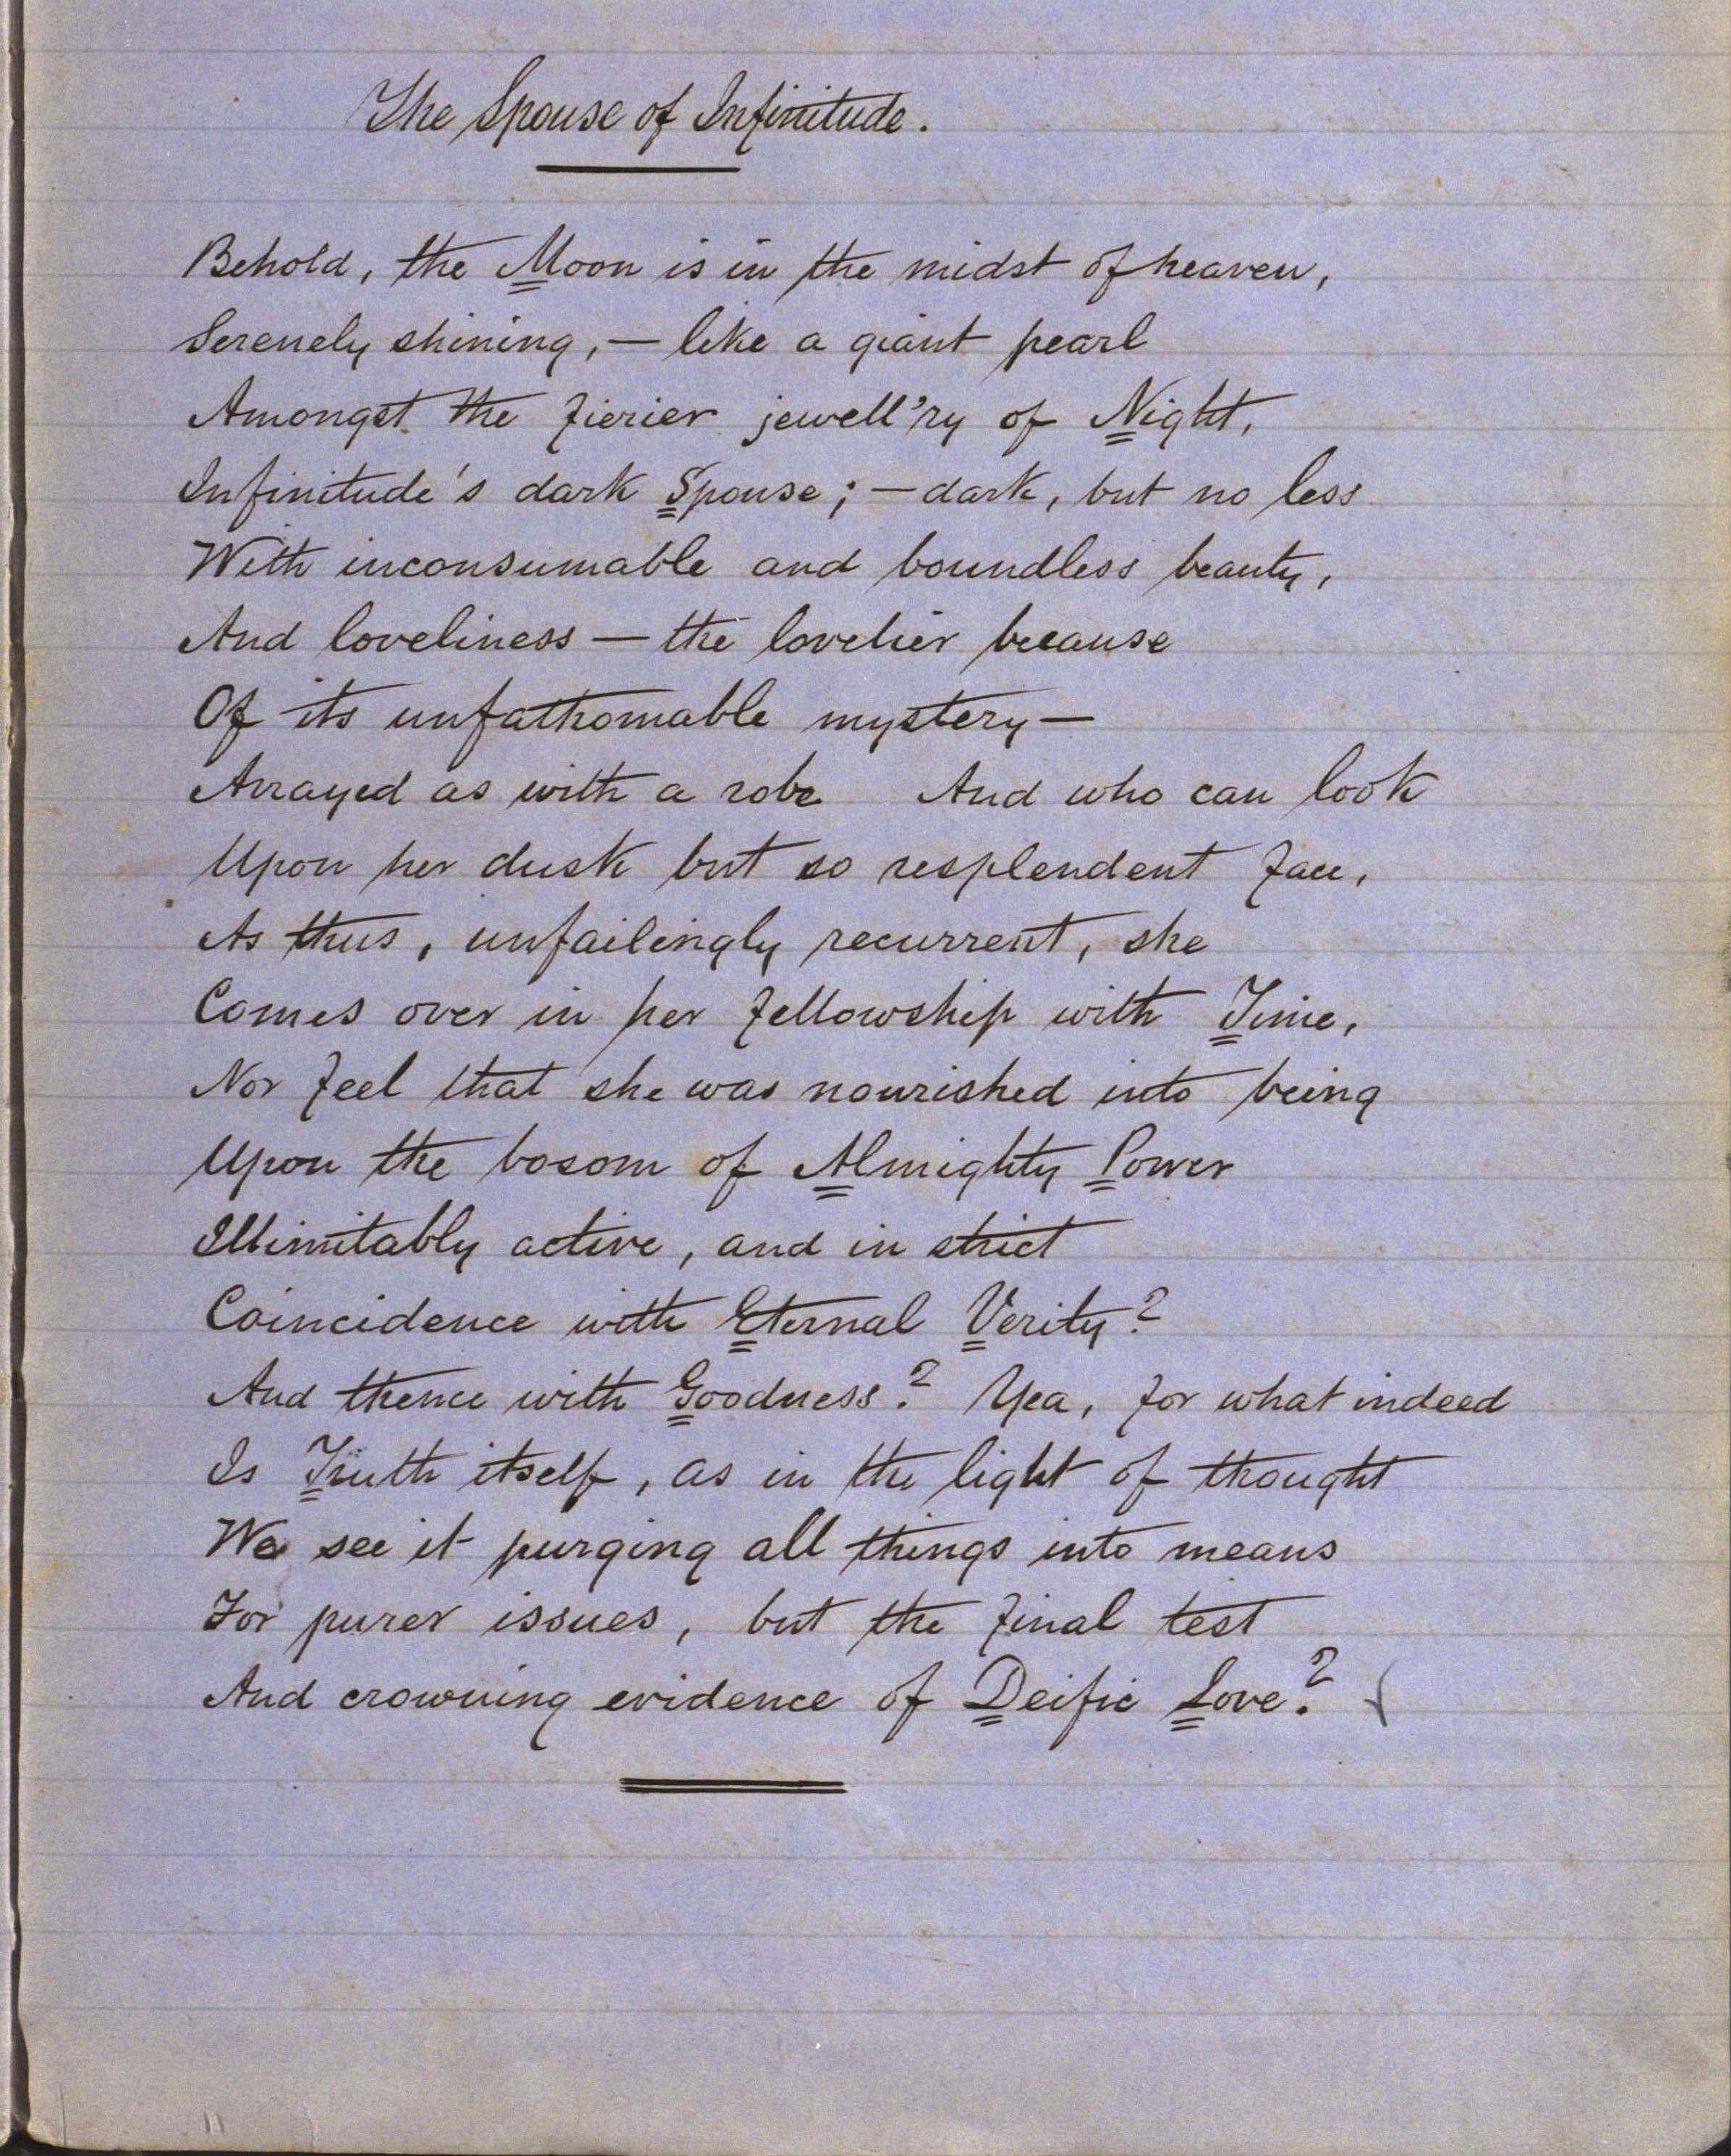 The Spouse of Infinitude.
Behold, the Moon is in the midst of heaven,
Serenely shining, — like a giant pearl
Amongst the fierier jewell'ry of Night,
Infinitude's dark Spouse; — dark, but no less
With inconsumable and boundless beauty,
And loveliness — the lovelier because
Of its unfathomable mystery —
Arrayed as with a robe And who can look
Upon her dusk but so resplendent face,
As thus, unfailingly recurrent, she
Comes over in her fellowship with Time,
Nor feel that she was nourished into being
Upon the bosom of Almighty Power
Illimitably active, and in strict
Coincidence with Eternal Verity?
And thence with Goodness? Yea, for what indeed
Is Truth itself, as in the light of thought
We see it purging all things into means
For purer issues, but the final test
And crowning evidence of Deific Love?
11